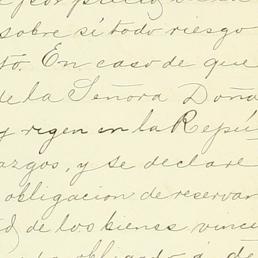 por precio
sobre sí todo riesgo
to. En caso de que
de la Señora Doña
y rigen en la Repú
azgos, y se declare
obligacion de reservar
de los bienes vince
obligado á de